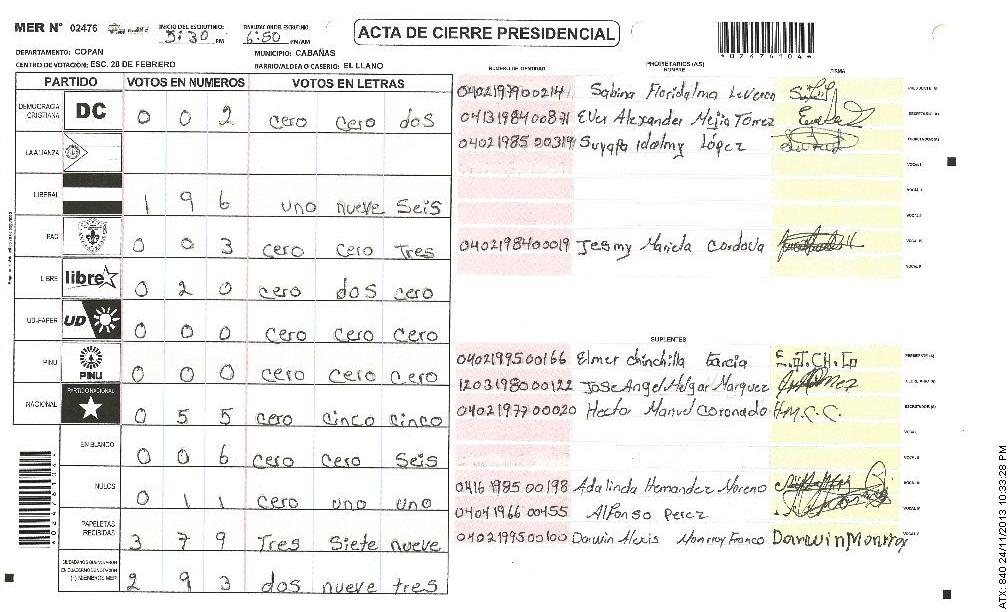 MER N° 02476 INICIO DEL ESCRUTINIO: 5:30 PM FINALIZACION DEL ESCRUTINIO: 6:50 PM/AM
ACTA DE CIERRE PRESIDENCIAL
*02476104*
DEPARTAMENTO: COPAN MUNICIPIO: CABAÑAS
CENTRO DE VOTACION: ESC. 28 DE FEBRERO BARRIO/ALDEA O CASERIO: EL LLANO
PARTIDO VOTOS EN NUMEROS VOTOS EN LETRAS
DEMOCRACIA CRISTIANA DC 0 0 2 cero cero dos
LA ALIANZA
LIBERAL 1 9 6 uno nueve seis
PAC 0 0 3 cero cero tres
LIBRE libre 0 2 0 cero dos cero
UD-FAPER UD 0 0 0 cero cero cero
PINU PINU 0 0 0 cero cero cero
NACIONAL PARTIDO NACIONAL 0 5 5 cero cinco cinco
EN BLANCO 0 0 6 cero cero seis
NULOS 0 1 1 cero uno uno
PAPELETAS RECIBIDAS 3 7 9 Tres Siete nueve
CIUDADANOS QUE VOTARON EN CUADERNO DE VOTACION (+) MIEMBROS MER 2 9 3 dos nueve tres
NUMERO DE IDENTIDAD PROPIETARIOS (AS) NOMBRE FIRMA
Sabina Floridalma PRESIDENTE (A)
0413198400871 Ever Alexander Mejia Torrez SECRETARIO (A)
0402198500319 Suyapa Idalmy López ESCRUTADOR (A)
VOCAL I
VOCAL II
VOCAL III
0402198400019 Jesmy Mariela Cordova VOCAL IV
VOCAL V
SUPLENTES
0402199500166 Elmer Chinchilla Garcia E.J.CH.G PRESIDENTE (A)
1203198000122 Jose Angel Melgar Marquez SECRETARIO (A)
0402197700020 Hecto Manuel Coronado H.M.C.C. ESCRUTADOR (A)
VOCAL I
VOCAL II
0416198500198 Adalinda Hernandez Moreno VOCAL III
0404196600455 Alfonso Perez VOCAL IV
0402199500100 Darwin Alexis Monroy Franco Darwin Monroy VOCAL V
ATX: 840 24/11/2013 10:33:28 PM